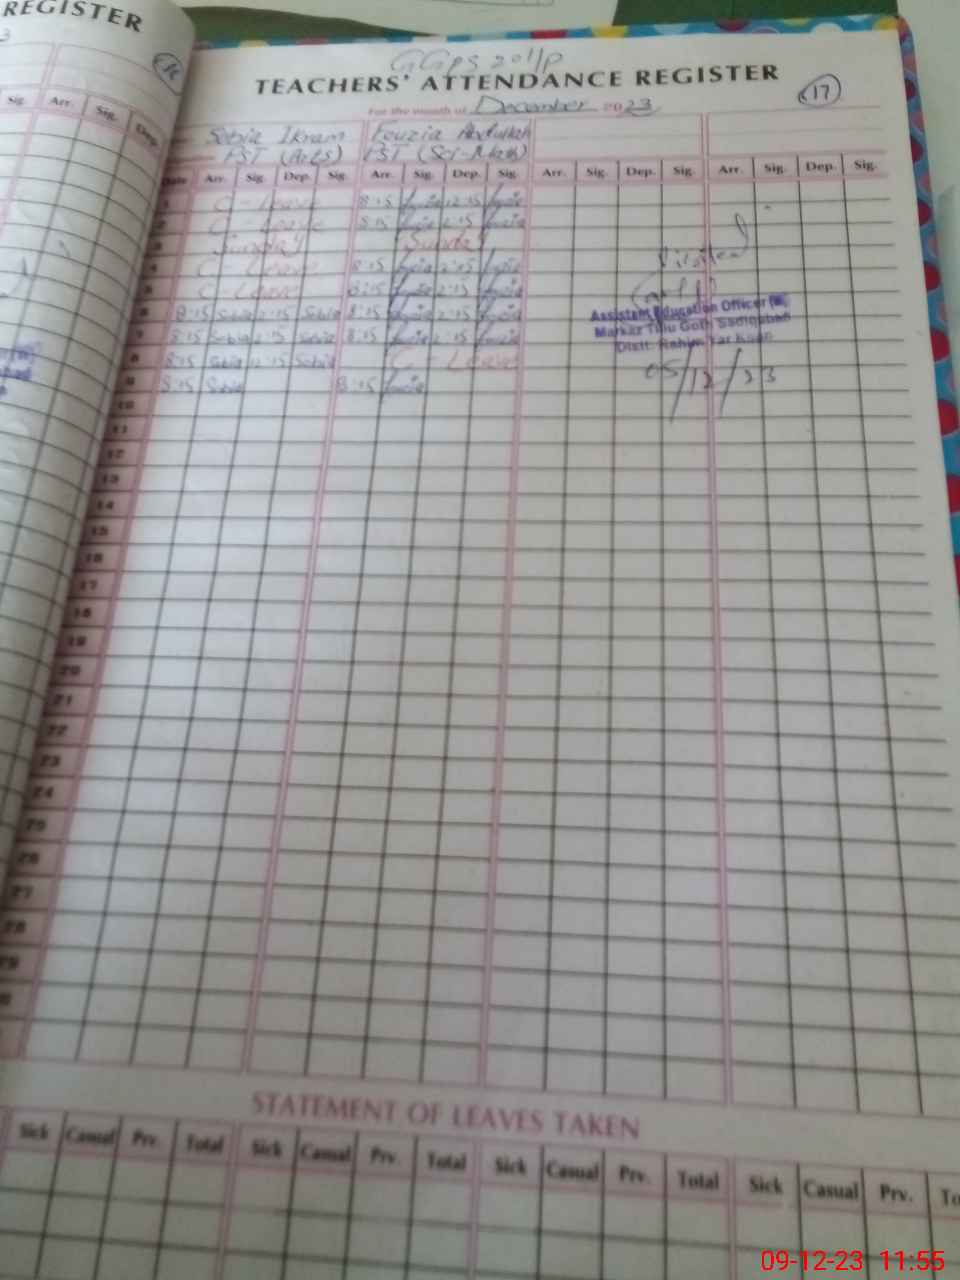 REGISTER
3
Sig. Arr. Sig. Dep.
GGPS 201/P
TEACHERS' ATTENDANCE REGISTER
17
For the month of December 2023
Sobia Ikram Fouzia Abdullah
PST (Arts) PST (Sci-Math)
Date Arr. Sig. Dep. Sig. Arr. Sig. Dep. Sig. Arr. Sig. Dep. Sig. Arr. Sig. Dep. Sig.
1 C - Leave 8:15 12:15
2 C - Leave 8:15 2:15
3 Sunday Sunday
4 C - Leave 8:15 2:15
5 C - Leave 8:15 2:15
6 8:15 Sobia 2:15 Sobia 8:15 2:15
7 8:15 Sobia 2:15 Sobia 8:15 2:15
8 8:15 Sobia 12:15 Sobia C - Leave
9 8:15 Sobia 8:15
Visited
Assistant Education Officer (W)
Markaz Tillu Goth Sadiqabad
Distt. Rahim Yar Khan
05/12/23
10
11
12
13
14
15
16
17
18
19
20
21
22
23
24
25
26
27
28
29
STATEMENT OF LEAVES TAKEN
Sick Casual Prv. Total Sick Casual Prv. Total Sick Casual Prv. Total Sick Casual Prv. To
09-12-23 11:55